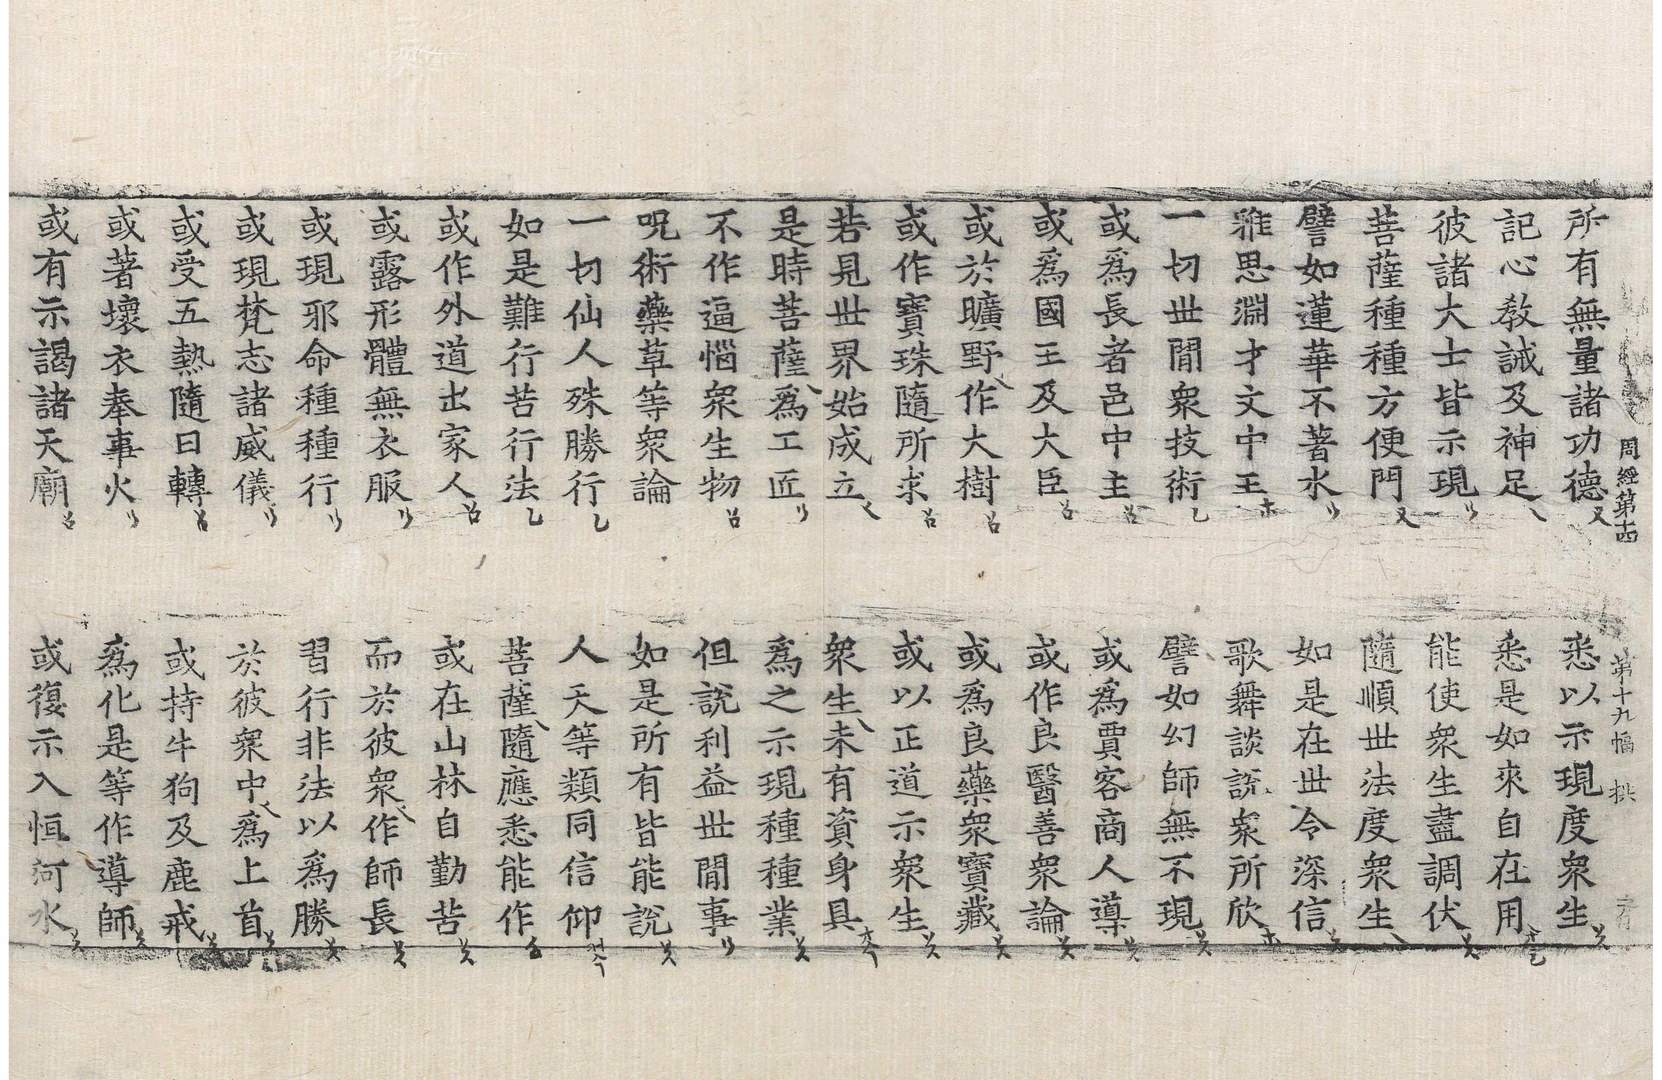 周經第十四 第十九幅 拱
所有無量諸功德 悉以示現度衆生
記心教誡及神足 悉是如來自在用
彼諸大士皆示現 能使衆生盡調伏
菩薩種種方便門 隨順世法度衆生
譬如蓮華不著水 如是在世令深信
雅思淵才文中王 歌舞談說衆所欣
一切世閒衆技術 譬如幻師無不現
或爲長者邑中主 或爲賈客商人導
或爲國王及大臣 或作良醫善衆論
或於曠野作大樹 或爲良藥衆寶藏
或作寶珠隨所求 或以正道示衆生
若見世界始成立 衆生未有資身具
是時菩薩爲工匠 爲之示現種種業
不作逼惱衆生物 但說利益世閒事
呪術藥草等衆論 如是所有皆能說
一切仙人殊勝行 人天等類同信仰
如是難行苦行法 菩薩隨應悉能作
或作外道出家人 或在山林自勤苦
或露形體無衣服 而於彼衆作師長
或現邪命種種行 習行非法以爲勝
或現梵志諸威儀 於彼衆中爲上首
或受五熱隨日轉 或持牛狗及鹿戒
或著壞衣奉事火 爲化是等作導師
或有示謁諸天廟 或復示入恒河水